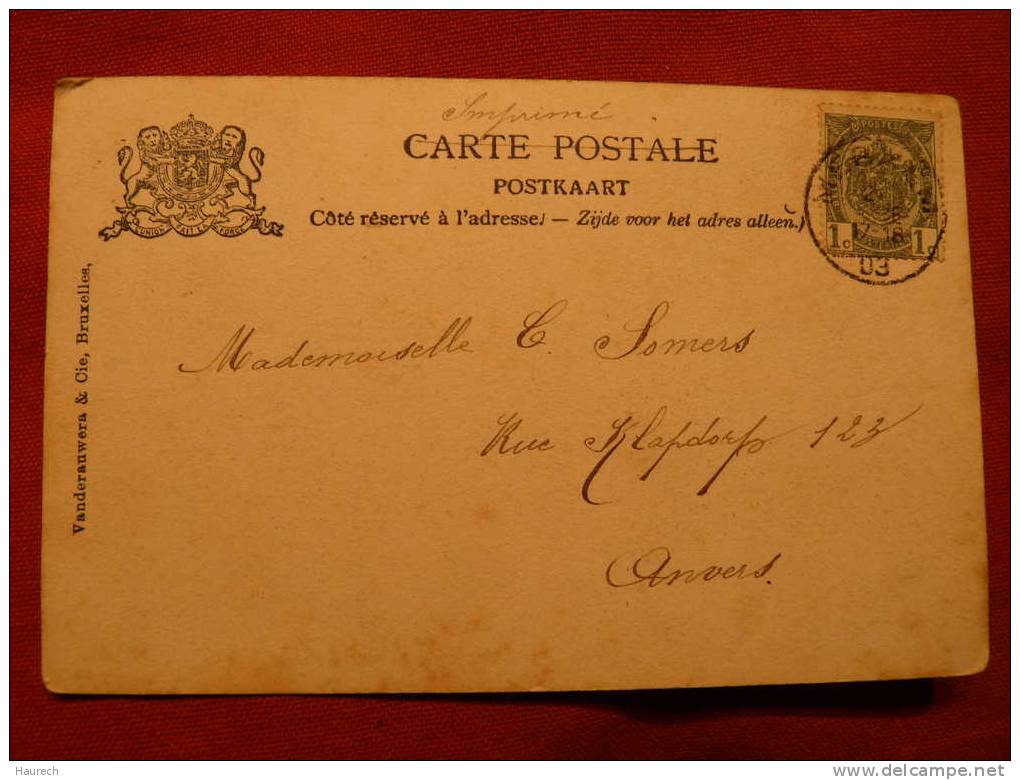 Imprimé
CARTE POSTALE
POSTKAART
Côté réservé à l'adresse. — Zijde voor het adres alleen.
L'UNION FAIT LA FORCE
17-18
03
1c 1c
Vanderauwera & Cie, Bruxelles,
Mademoiselle C. Somers
Rue Klapdorp 123
Anvers.
Haurech
www.delcampe.net